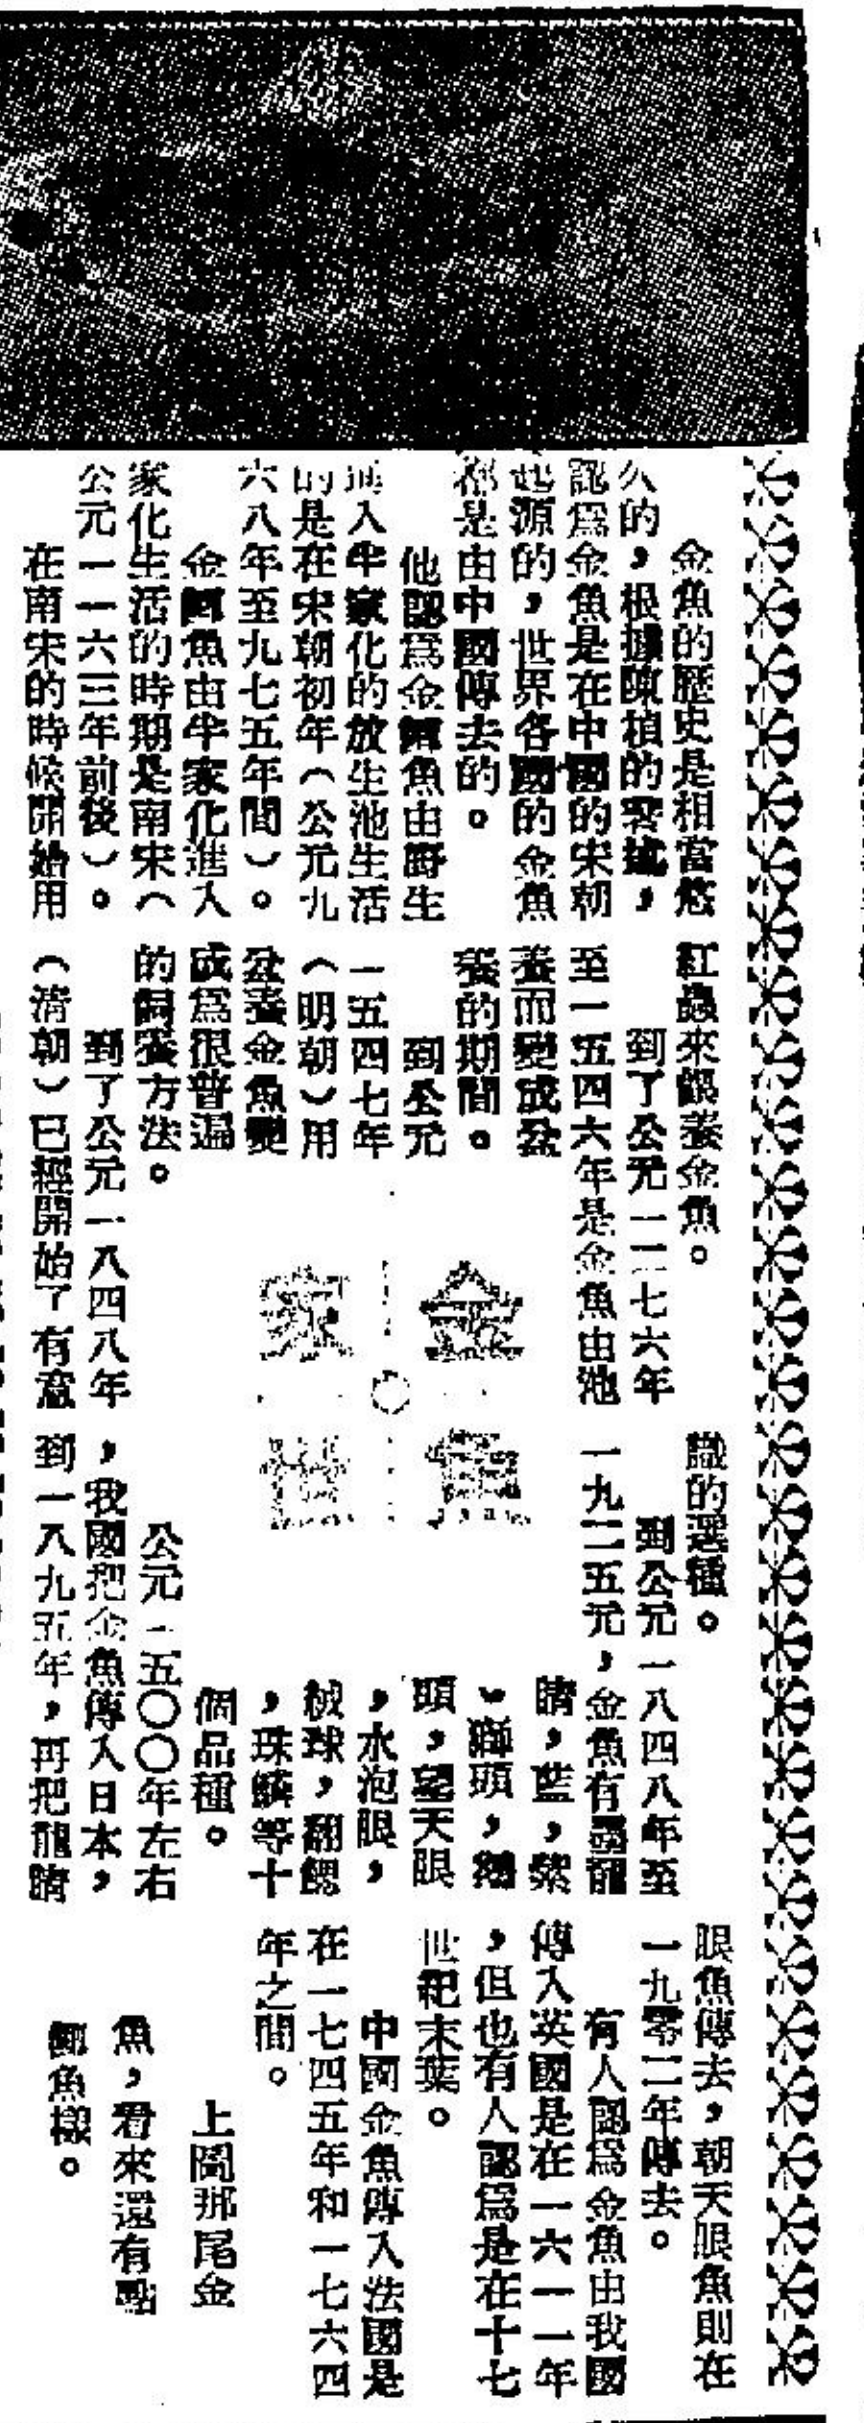 金魚家世
金魚的歷史是相當悠
久的，根據陳楨的零述，
認爲金魚是在中國的宋朝
起源的，世界各國的金魚
都是由中國傳去的。
他認爲金鯽魚由野生
進入半家化的放生池生活
的是在宋朝初年（公元九
六八年至九七五年間）。
金鯽魚由半家化進入
家化生活的時期是南宋（
公元一一六三年前後）。
在南宋的時候開始用
紅蟲來餵養金魚。
到了公元一二七六年
至一五四六年是金魚由池
養而變成盆
養的期間。
到公元
一五四七年
（明朝）用
盆養金魚變
成爲很普遍
的飼養方法。
到了公元一八四八年
（清朝）已經開始了有意
識的選種。
到公元一八四八年至
一九二五元，金魚有墨龍
睛，藍，紫
，獅頭，鵝
頭，望天眼
，水泡眼，
絨球，翻鰓
，珠鱗等十
個品種。
公元一五〇〇年左右
，我國把金魚傳入日本，
到一八九五年，再把龍睛
眼魚傳去，朝天眼魚則在
一九零二年傳去。
有人認爲金魚由我國
傳入英國是在一六一一年
，但也有人認爲是在十七
世紀末葉。
中國金魚傳入法國是
在一七四五年和一七六四
年之間。
上圖那尾金
魚，看來還有點
鯽魚樣。